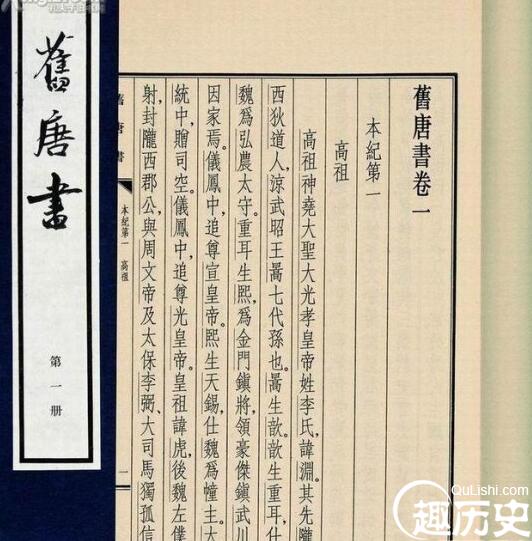 舊唐書卷一
本紀第一
高祖
高祖神堯大聖大光孝皇帝姓李氏,諱淵。其先隴
西狄道人,涼武昭王暠七代孫也。暠生歆。歆生重耳,仕
魏爲弘農太守。重耳生熙,爲金門鎮將,領豪傑鎮武川
因家焉。儀鳳中,追尊宣皇帝。熙生天錫,仕魏爲幢主。大
統中,贈司空。儀鳳中,追尊光皇帝。皇祖諱虎,後魏左僕
射,封隴西郡公,與周文帝及太保李弼、大司馬獨孤信
舊唐書
本紀第一 高祖
一
舊唐書
第一册
QuLishi.com
趣历史